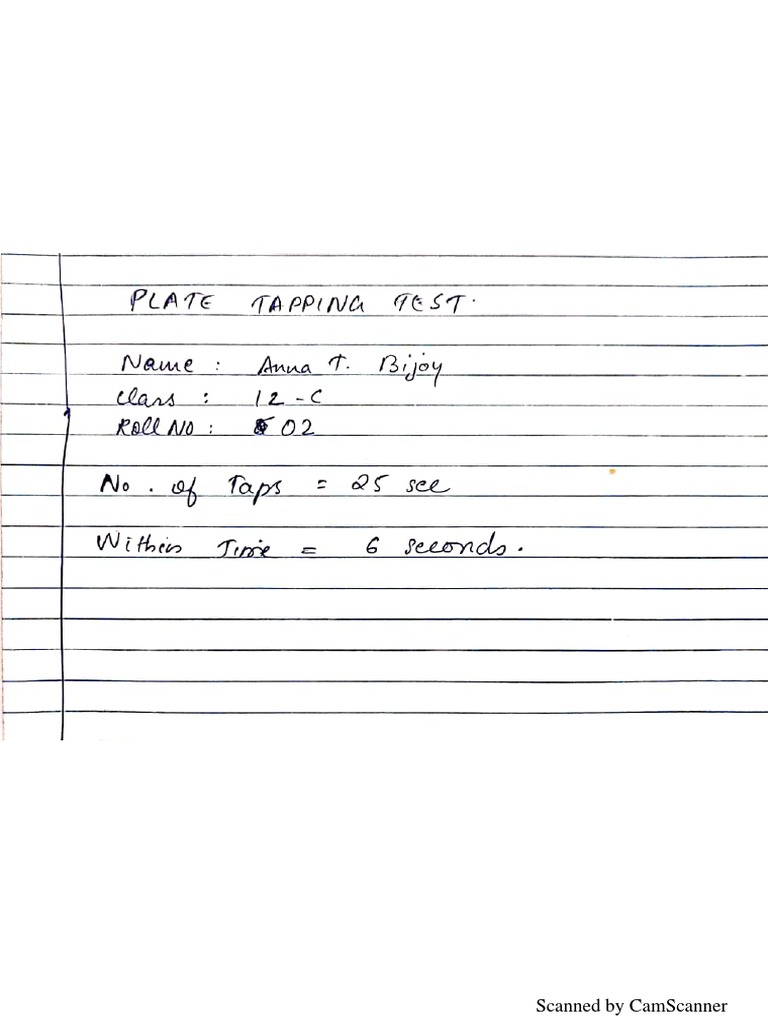 PLATE TAPPING TEST.
Name : Anna T. Bijoy
Class : 12 - C
Roll No : 02
No. of Taps = 25 sec
Within Time = 6 seconds.
Scanned by CamScanner